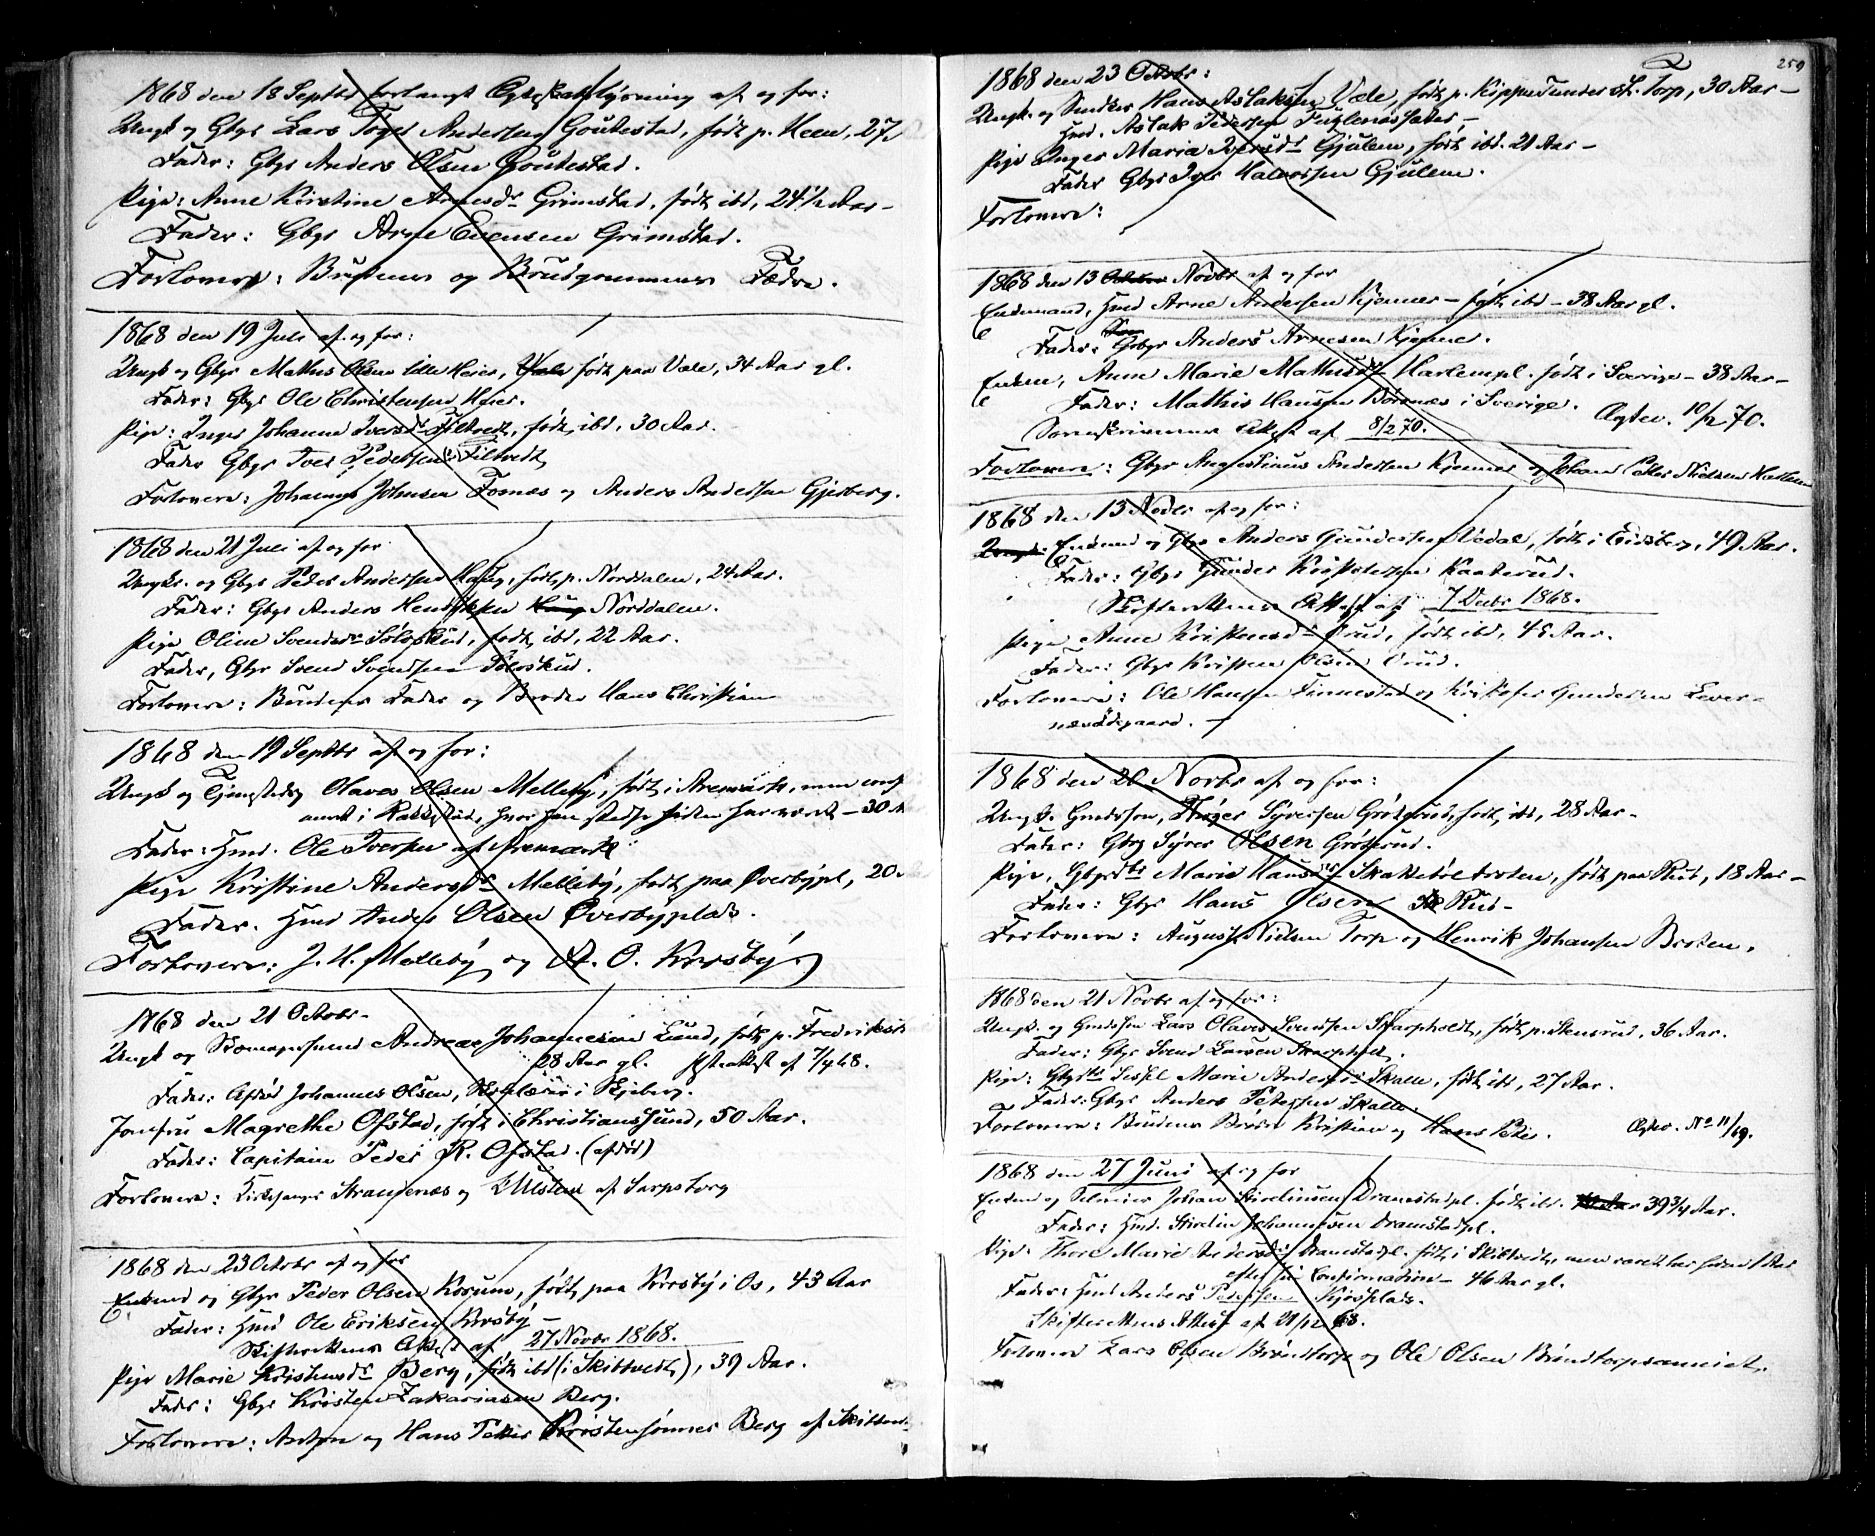 1868 den 18 Septbr forlangt Egteskabslysning af og for:
Ungk og Gbgr Lars Andersen Goutestad, født p. Heen, 27
Fader: Gbgr Anders Olsen Goutestad.
Pige: Anne Kirstine Arnesdr Grimstad, født ibd, 24 1/2 Aar –
Fader: Gbgr Arne Evensen Grimstad.
Forlovere: Brudens og Brudgommens Fædre.
1868 den 19 Juli af og for:
Ungk og Gbgr Mathis Olsen lille Heier, født paa Vale, 34 Aar gl.
Fader: Gbgr Ole Christensen Heier.
Pige: Inger Johanne Iversdr Filtvedt, født ibd, 30 Aar.
Fader Gbgr Iver Pedersen Filtvedt
Forlovere: Johannes Johnsen Fosnæs og Anders Andersen Gjerberg.
1868 den 21 Juli af og for
Ungk. og Gbgr Peder Andersen Haug, født p. Norddalen, 24 Aar.
Fader: Gbgr Anders Hendriksen Haug Norddalen.
Pige Oline Svendsdr Sølvskud, født ibd, 22 Aar.
Fader, Gbgr Svend Svendsen Sølvskud.
Forlovere: Brudens Fader og Broder Hans Christian
1868 den 19 Septbr af og for:
Ungk og Olaves Olsen Melleby, født i Aremark, men conf
i Rakkestad, hvor han stedse siden har været – 30
Fader: Hmd. Ole Iversen af Aremark
Pige Kristine Andersdr Melleby, født paa Øverbypl, 20
Fader. Hmd Anders Olsen Øverbyplads.
Forlovere: J. H. Melleby og A. O. Kirsby.
1868 den 21 Octobr –
Ungk og Andreas Johannesen Lund, født p. Fredrikst
28 Aar gl. Attest af 7/9 68.
Fader: Afdød Johannes Olsen, i Skjeberg.
Jomfru Magrethe Ofstad, født i Christianssund, 50 Aar.
Fader: Capitain Peder R. Ofstad. (afdød)
Forlovere: Kirkesanger Strandenæs og Ulsten af Sarpsborg
1868 den 23 Octobr af og for
Enkmd og Gbgr Peder Olsen Korum, født paa Kirsby i Os, 43 Aar
Fader: Hmd Ole Eriksen Kirsby –
Skifterettens Attest af 27 Novbr 1868.
Pige Marie Kristensdr Berg, født ibd (i Skibtvedt), 39 Aar.
Fader: Gbgr Kristen Zakariasen Berg.
Forlovere: Anton og Hans Peder Kristensønner Berg af Skibtv
259
1868 den 23 Octobr:
Ungk. og Snedker Hans Aslaksen Vale, født p. Kippe under st. Torp, 30 Aar –
Hmd. Aslak Pedersen
Pige Inger Maria Iversdr Gjulem, født ibd. 21 Aar –
Fader Gbgr Iver Halvorsen Gjulem.
Forlovere:
1868 den 13 Novbr af og for
Enkemand, Hmd Arne Andersen Kjenner – født ibd – 38 Aar gl.
Fader: Gbgr Anders Arnesen Kjenner.
Enken, Anne Marie Mathisdr Harlempl. født i Sverige – 38 Aar –
Fader: Mathis Hansen Börsnæs i Sverige. Egtev. 10/2 70.
Attest af 8/2 70.
Forlovere: Gbgr Augustinus Andersen Kjenner og Johan Peter Nielsen Harlem
1868 den 13 Novbr af og for:
Ungk: Enkmd og Gbgr Anders Gundersen Vedal, født i Eidsberg, 49 Aar.
Fader: Gbgr Gunder Kristofersen Kaaterud.
Skifterettens Attest af 7 Decbr 1868.
Pige Anne Kristensdr Krud, født ibd, 45 Aar.
Fader: Gbgr Kristen Olsen Krud.
Forlovere: Ole Hansen Finnestad og Kristofer Gundersen Lever-
næsødegaard. –
1868 den 20 Novbr af og for:
Ungk. Gaardssøn, Syversen Grøterud, født ibd, 28 Aar –
Fader: Gbgr Syver Olsen Grøterud.
Pige, Gbgrdtr Marie Hansdr Skaketvetbroten, født paa Rud, 18 Aar –
Fader: Gbgr Hans Olsen Rud –
Forlovere: August Nielsen Torp og Henrik Johansen Broten.
1868 den 21 Novbr af og for:
Ungk. og Gmdssøn Lars Olaves Svendsen Skarpholdt, født p. Stensrud, 36 Aar.
Fader: Gbgr Svend Larsen Skarpholdt.
Pige: Gbgrdtr Sissel Marie Andersdr Skalle, født ibd, 27 Aar.
Fader: Gbgr Anders Petersen Skalle.
Forlovere: Brudens Brødre Kristian og Hans Peter. Egtev. No 11/69.
1868 den 27 Juni af og for
Enkmd og Johan Dramstadpl. født ibd. 39 3/4 Aar.
Fader: Hmd. Johannesen Dramstadpl.
Pige: Thore Marie Andersdr Dramstadpl. født i Skibtvedt, men været her siden 1 Aar
efter sin Confirmation – 46 Aar gl.
Fader: Hmd Anders Pedersen Kjosplads.
Skifterettens Attest af 21/12 68.
Forlovere Lars Olsen Brøndtorp og Ole Olsen Brøndtorpsanniet.